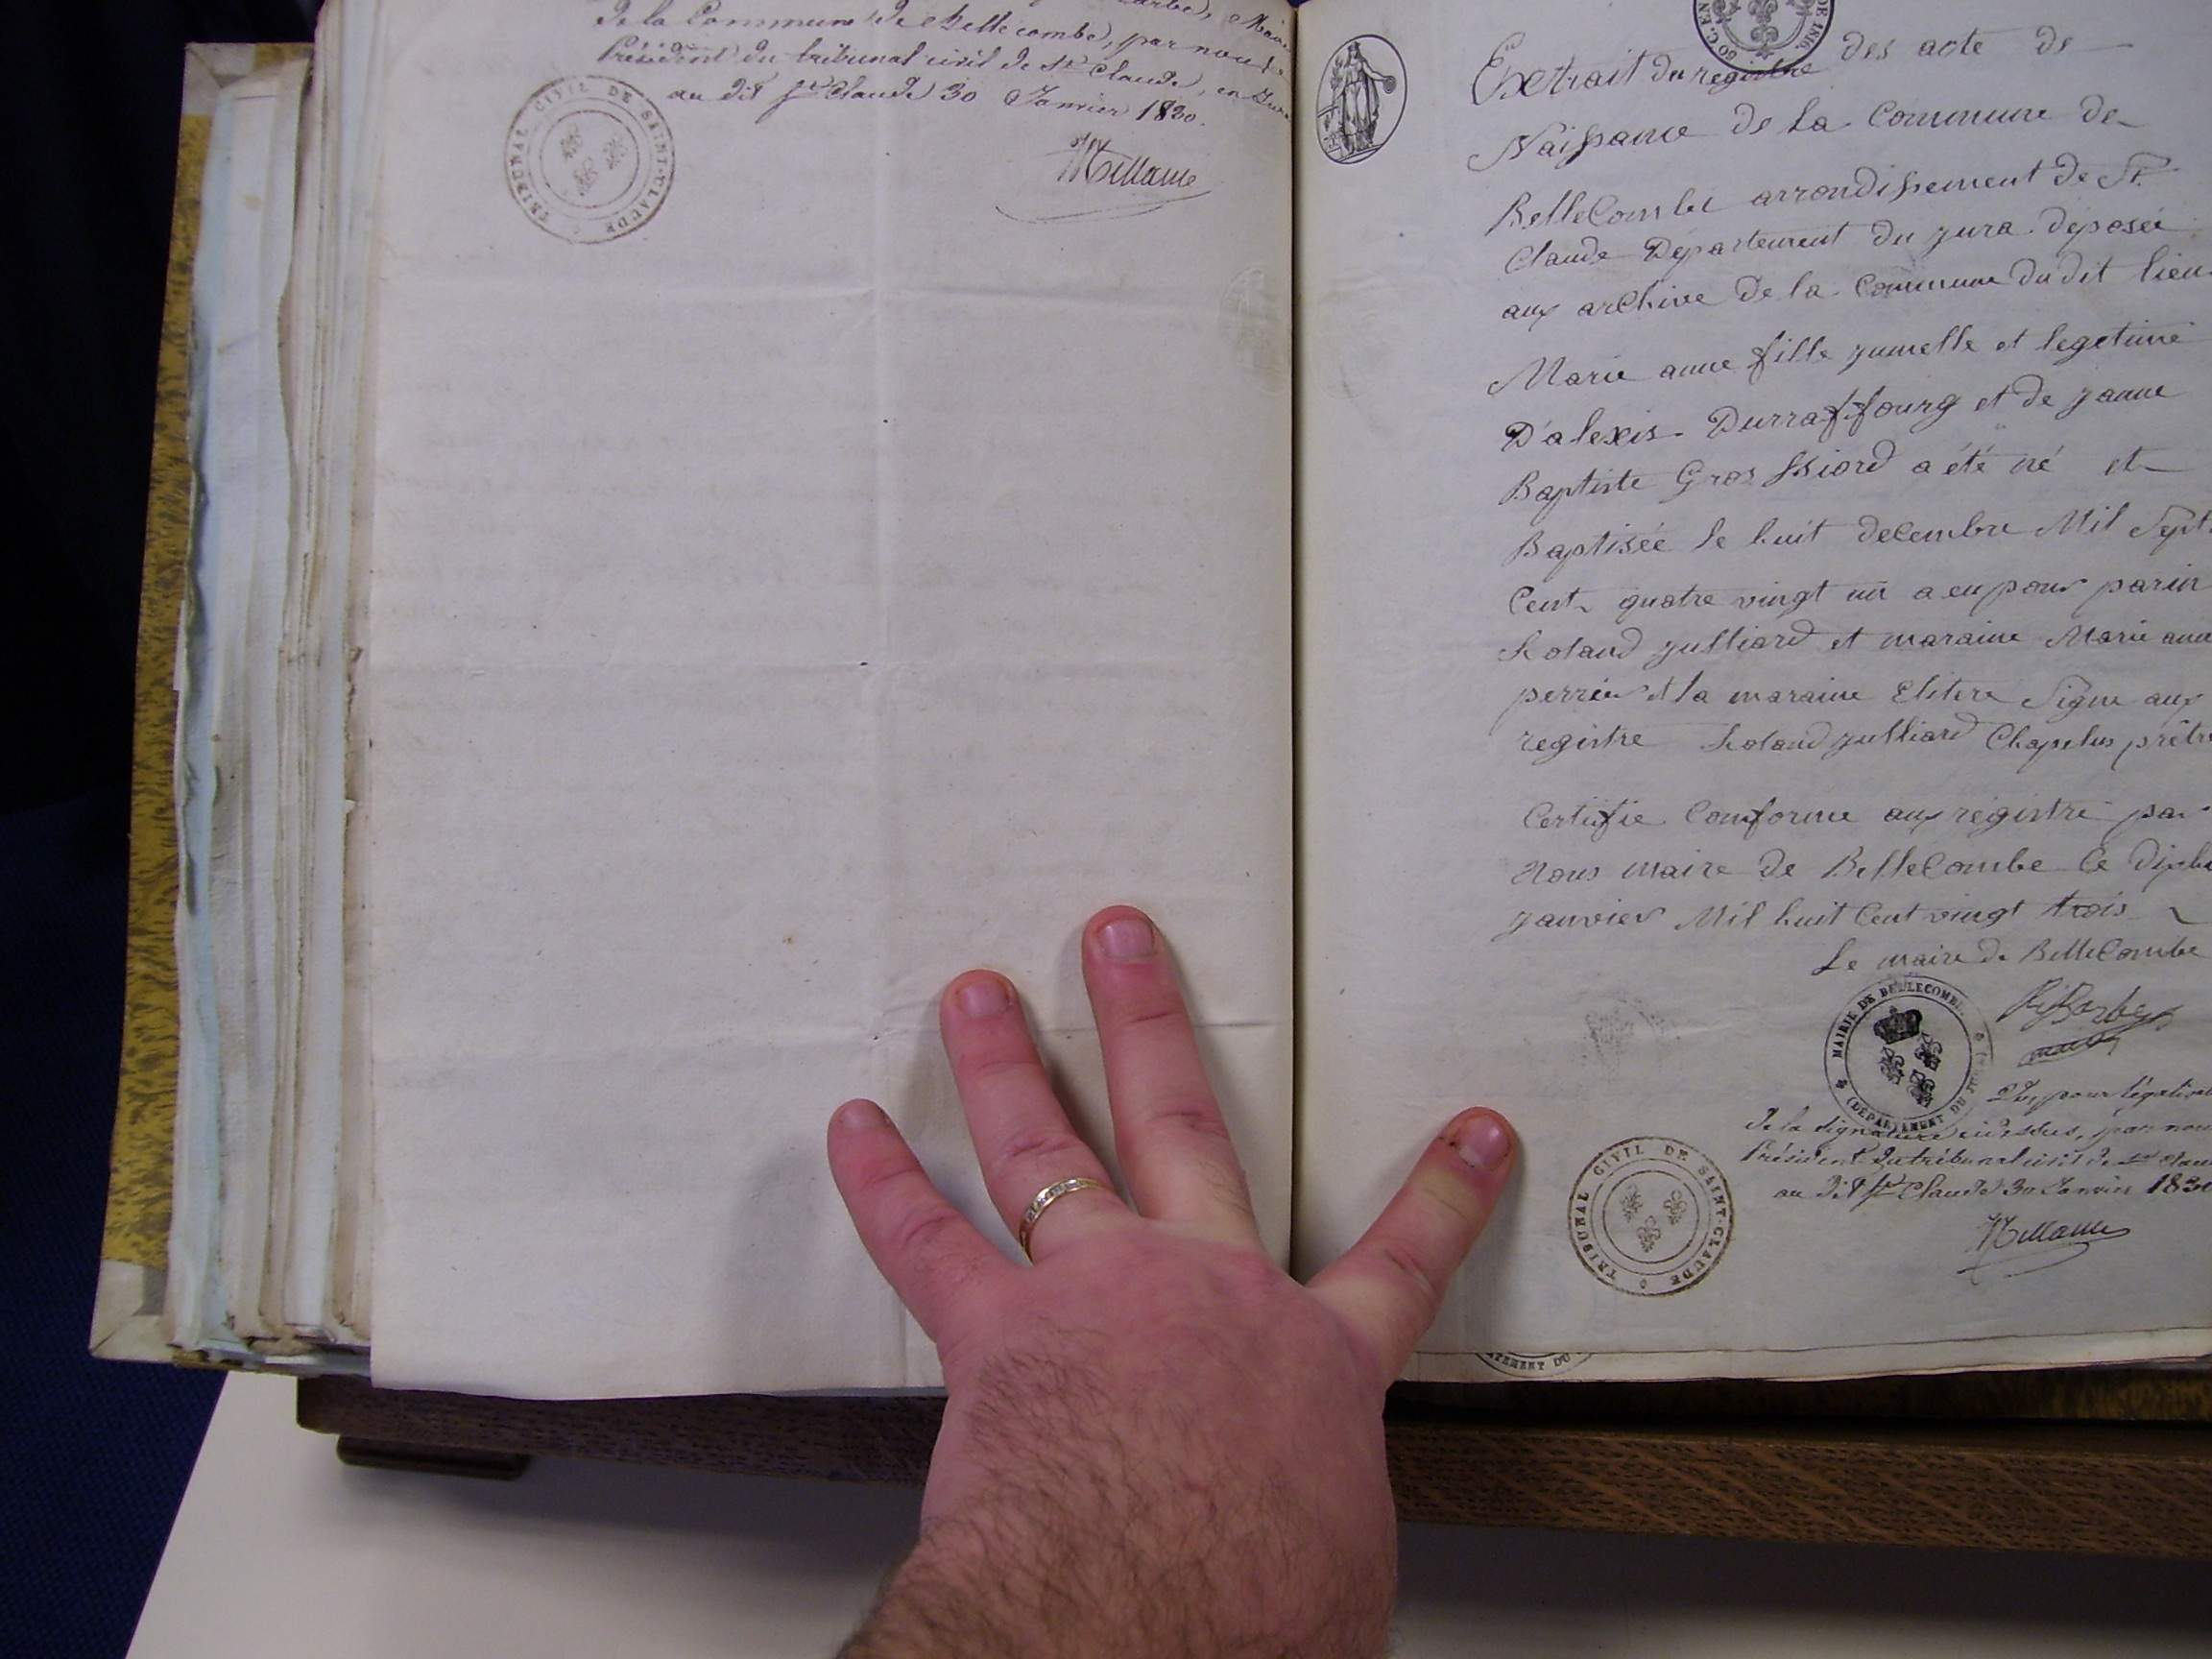 de la Commune de Bellecombe, par nous
Président du tribunal civil de St Claude, en
au dit St Claude 30 Janvier 1830.
TRIBUNAL CIVIL DE SAINT-CLAUDE
Extrait du registre des acte de
Naissance de la Commune de
BelleCombe arrondissement de St.
Claude Département du jura déposée
aux archive de la Commune du dit lieu
Marie anne fille jumelle et legetime
D'alexis Durraffourg et de janne
Baptiste Gros fsiord a été né et
Baptisée le huit decembre Mil Sept
Cent quatre vingt un a eu pour parin
Roland julliard et maraine Marie anne
perrier et la maraine Elitere Signe aux
registre Roland julliard Chapelus prêtre
Certifie Conforme aux régistre par
Nous maire de BelleCombe le
janvier Mil huit Cent vingt trois
Le maire de BelleCombe
MAIRIE DE BELLECOMBE
(DÉPARTEMENT DU JURA)
Vu pour légalisat
de la signature ci-dessus, par nous
Président du tribunal civil de St Claude
au dit St Claude 30 Janvier 1830
TRIBUNAL CIVIL DE SAINT-CLAUDE